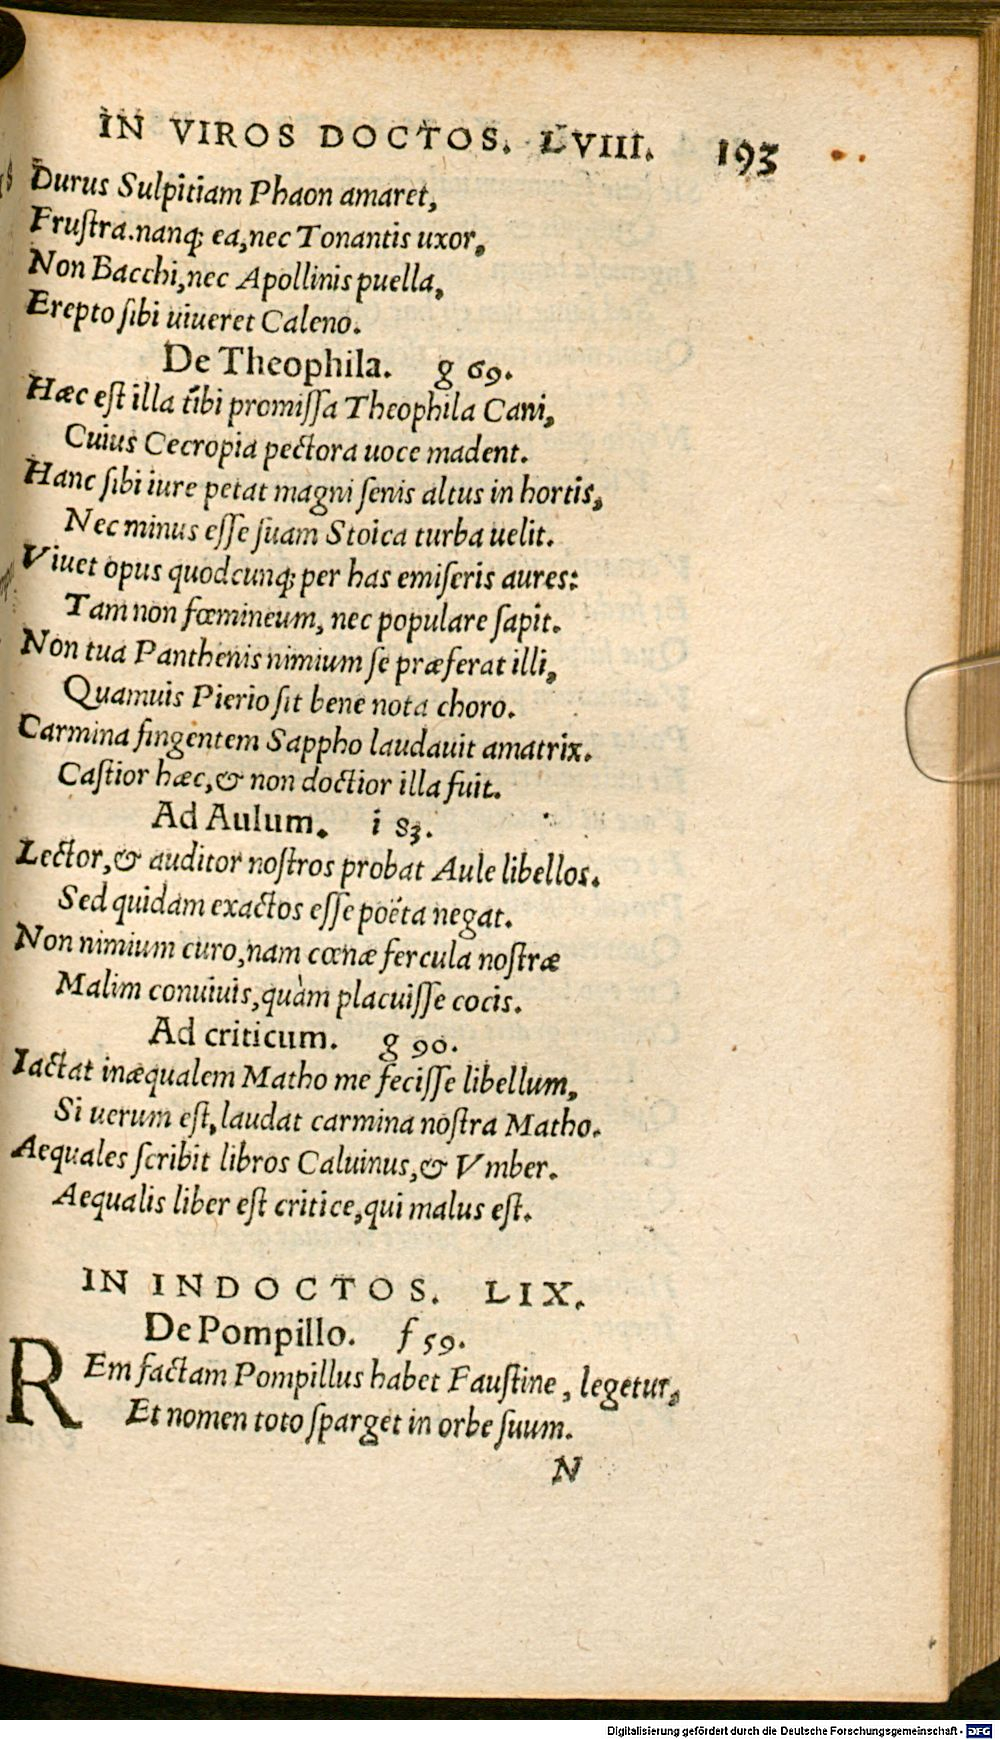 IN VIROS DOCTOS. LVIII. 193
Durus Sulpitiam Phaon amaret,
Fruſtra.nanq; ea,nec Tonantis uxor,
Non Bacchi,nec Apollinis puella,
Erepto ſibi uiueret Caleno.
De Theophila. g 69.
Hæc eſt illa tibi promiſſa Theophila Cani,
Cuius Cecropia pectora uoce madent.
Hanc ſibi iure petat magni ſenis altus in hortis,
Nec minus eſſe ſuam Stoica turba uelit.
Viuet opus quodcunq; per has emiſeris aures:
Tam non fœmineum, nec populare ſapit.
Non tua Panthenis nimium ſe præferat illi,
Quamuis Pierio ſit bene nota choro.
Carmina fingentem Sappho laudauit amatrix.
Caſtior hæc,& non doctior illa fuit.
Ad Aulum. i 83.
Lector,& auditor noſtros probat Aule libellos.
Sed quidam exactos eſſe poëta negat.
Non nimium curo,nam cœnæ fercula noſtræ
Malim conuiuis,quàm placuiſſe cocis.
Ad criticum. g 90.
Iactat inæqualem Matho me feciſſe libellum,
Si uerum eſt,laudat carmina noſtra Matho.
Aequales ſcribit libros Caluinus,& Vmber.
Aequalis liber eſt critice,qui malus eſt.
IN INDOCTOS. LIX.
De Pompillo. f 59.
REm factam Pompillus habet Fauſtine, legetur,
Et nomen toto ſparget in orbe ſuum.
N
Digitalisierung gefördert durch die Deutsche Forschungsgemeinschaft - DFG